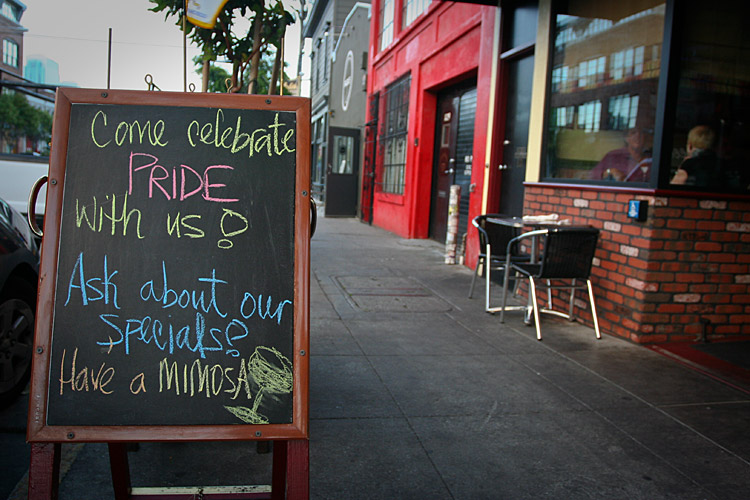 Come celebrate
PRIDE
with us!
Ask about our
specials!
Have a MIMOSA